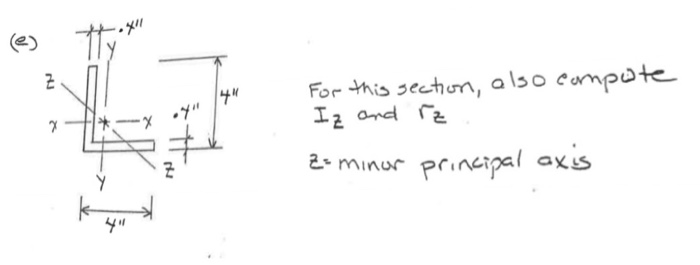 .4"
(e)
y
z
4"
For this section, also compute
x
x
.4"
Iz and rz
z
z= minor principal axis
y
4"